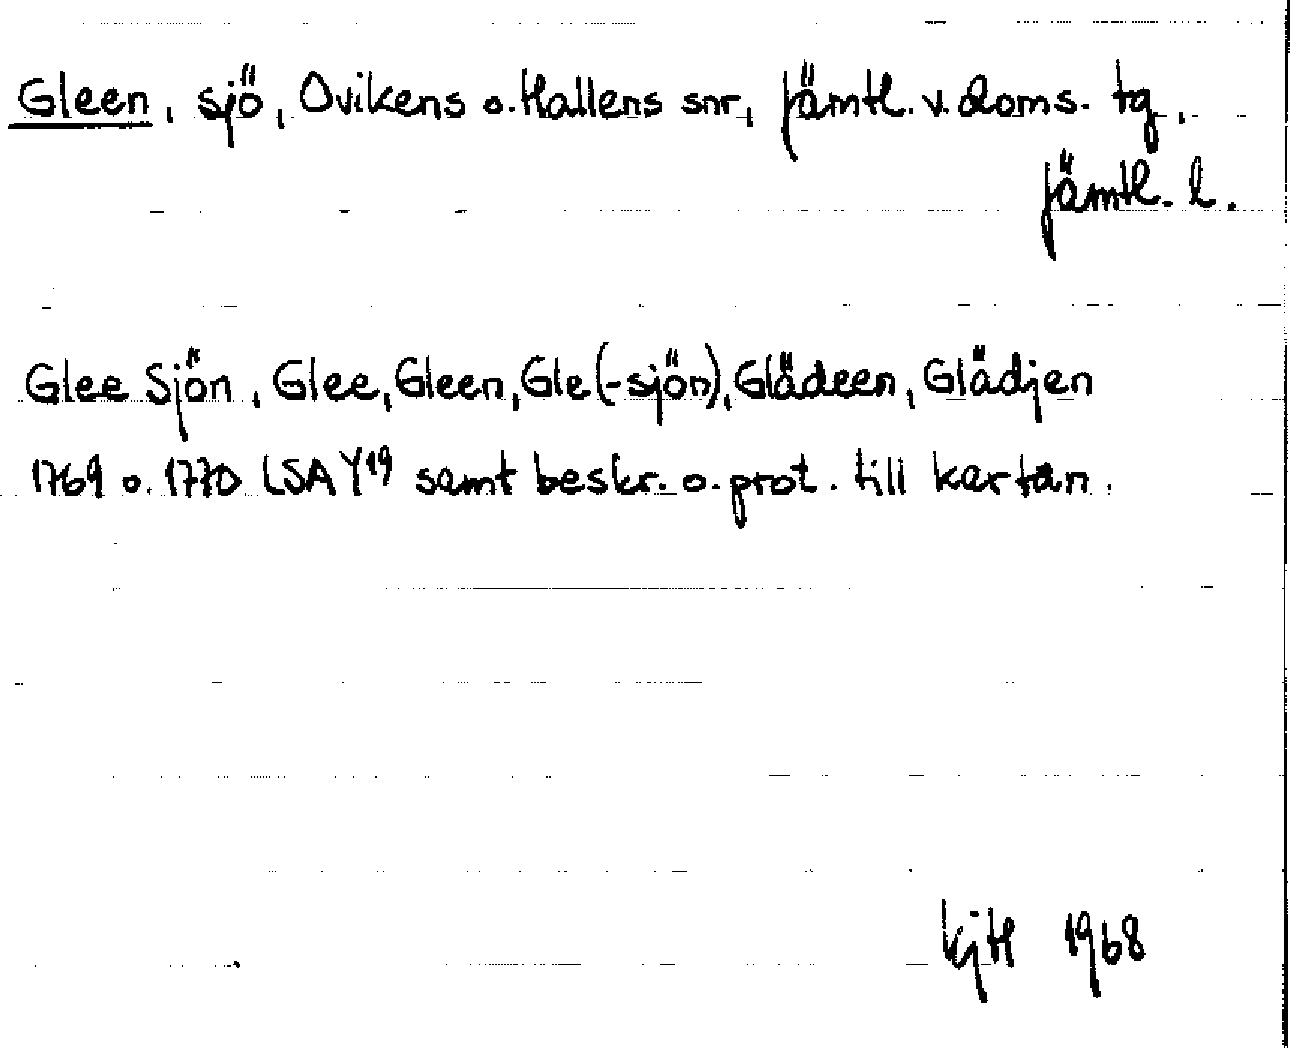 Gleen, sjö, Ovikens o. Hallens snr, Jämtl. v. doms. tg,
Jämtl. l.
Glee Sjön, Glee, Gleen, Gle(-sjön), Glädeen, Glädjen
1769 o. 1770 LSA Y19 samt beskr. o. prot. till kartan.
1968